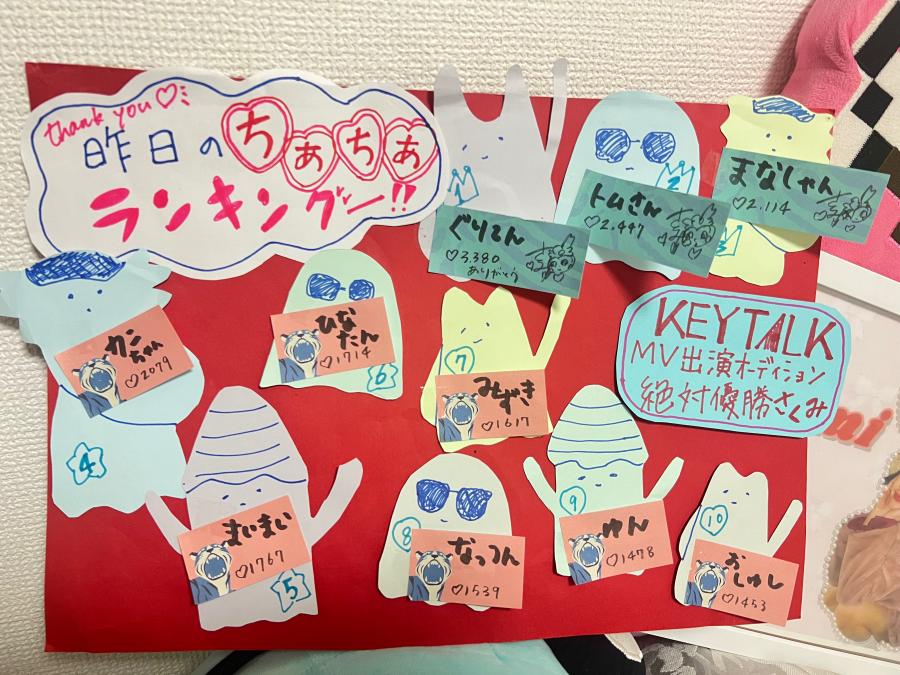 thank you♡
昨日のちぁちぁ
ランキングー!!
1
ぐりてん
♡3,380
ありがとう
2
トムさん
♡2.447
3
まなしゃん
♡2.114
KEYTALK
MV出演オーディション
絶対優勝さくみ
カンちゃん
♡2079
4
まいまい
♡1767
5
ひなたん
♡1714
6
7
みずき
♡1617
8
なっつん
♡1539
9
ゆん
♡1478
10
おしゅし
♡1453
mi